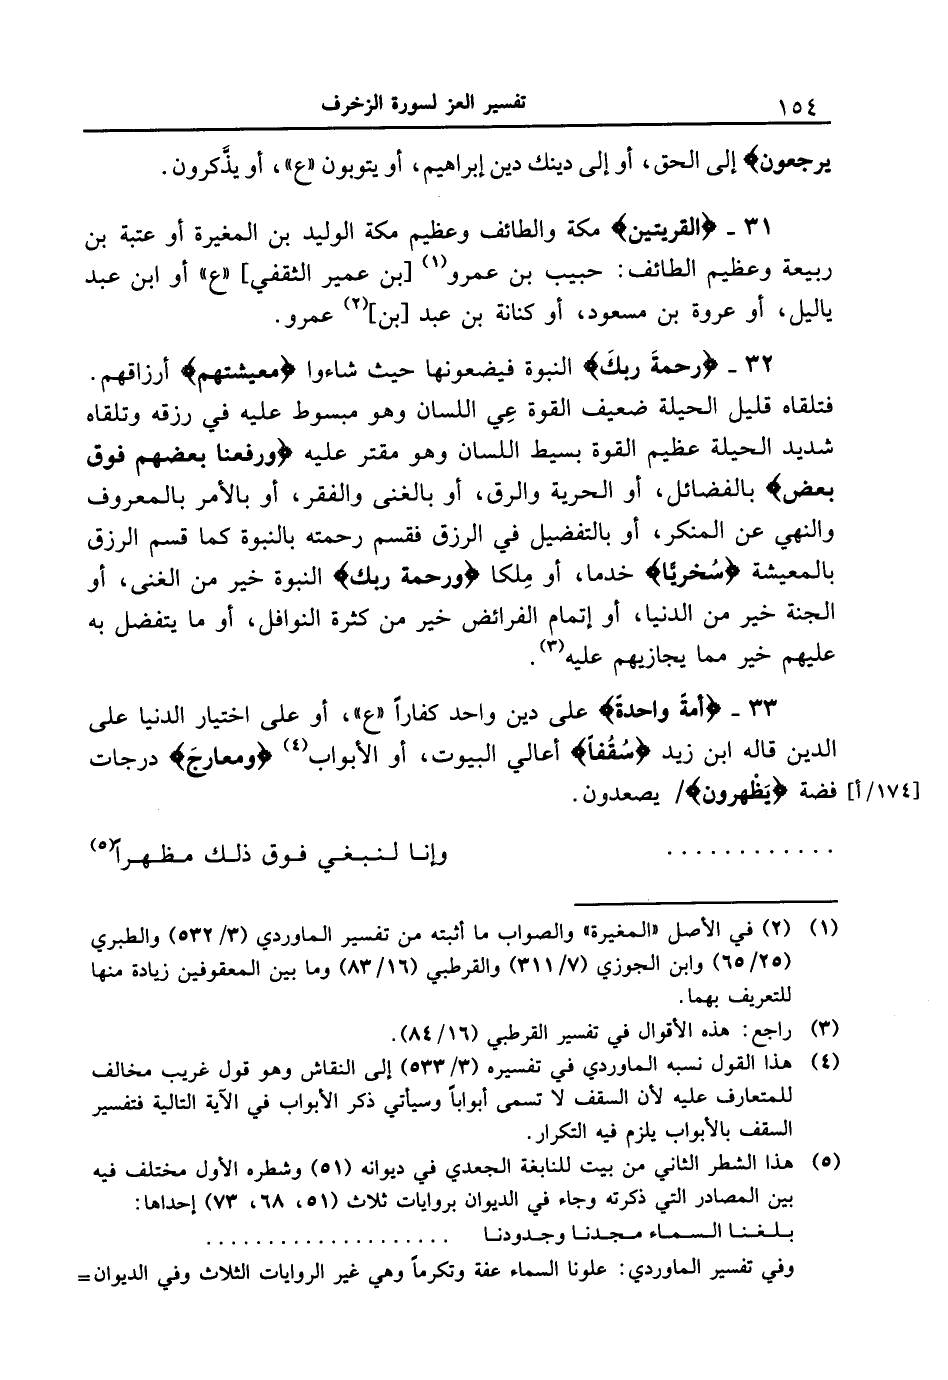 ١٥٤ تفسير العز لسورة الزخرف
يرجعون﴾ إلى الحق، أو إلى دينك دين إبراهيم، أو يتوبون «ع»، أو يذَّكرون.
٣١ ـ ﴿القريتين﴾ مكة والطائف وعظيم مكة الوليد بن المغيرة أو عتبة بن
ربيعة وعظيم الطائف: حبيب بن عمرو(١) [بن عمير الثقفي] «ع» أو ابن عبد
ياليل، أو عروة بن مسعود، أو كنانة بن عبد [بن](٢) عمرو.
٣٢ ـ ﴿رحمةَ ربكَ﴾ النبوة فيضعونها حيث شاءوا ﴿معيشتهم﴾ أرزاقهم.
فتلقاه قليل الحيلة ضعيف القوة عِي اللسان وهو مبسوط عليه في رزقه وتلقاه
شديد الحيلة عظيم القوة بسيط اللسان وهو مقتر عليه ﴿ورفعنا بعضهم فوق
بعض﴾ بالفضائل، أو الحرية والرق، أو بالغنى والفقر، أو بالأمر بالمعروف
والنهي عن المنكر، أو بالتفضيل في الرزق فقسم رحمته بالنبوة كما قسم الرزق
بالمعيشة ﴿سُخريًا﴾ خدما، أو مِلكا ﴿ورحمة ربك﴾ النبوة خير من الغنى، أو
الجنة خير من الدنيا، أو إتمام الفرائض خير من كثرة النوافل، أو ما يتفضل به
عليهم خير مما يجازيهم عليه(٣).
٣٣ ـ ﴿أمةً واحدةً﴾ على دين واحد كفاراً «ع»، أو على اختيار الدنيا على
الدين قاله ابن زيد ﴿سُقُفاً﴾ أعالي البيوت، أو الأبواب(٤) ﴿ومعارجَ﴾ درجات
[١٧٤/أ] فضة ﴿يَظْهرون﴾/ يصعدون.
............ وإنا لنبغي فوق ذلك مظهراً(٥)
(١) (٢) في الأصل «المغيرة» والصواب ما أثبته من تفسير الماوردي (٣/ ٥٣٢) والطبري
(٢٥/ ٦٥) وابن الجوزي (٧/ ٣١١) والقرطبي (١٦/ ٨٣) وما بين المعقوفين زيادة منها
للتعريف بهما.
(٣) راجع: هذه الأقوال في تفسير القرطبي (١٦/ ٨٤).
(٤) هذا القول نسبه الماوردي في تفسيره (٣/ ٥٣٣) إلى النقاش وهو قول غريب مخالف
للمتعارف عليه لأن السقف لا تسمى أبواباً وسيأتي ذكر الأبواب في الآية التالية فتفسير
السقف بالأبواب يلزم فيه التكرار.
(٥) هذا الشطر الثاني من بيت للنابغة الجعدي في ديوانه (٥١) وشطره الأول مختلف فيه
بين المصادر التي ذكرته وجاء في الديوان بروايات ثلاث (٥١، ٦٨، ٧٣) إحداها:
بلغنا السماء مجدنا وجدودنا ....................
وفي تفسير الماوردي: علونا السماء عفة وتكرماً وهي غير الروايات الثلاث وفي الديوان=